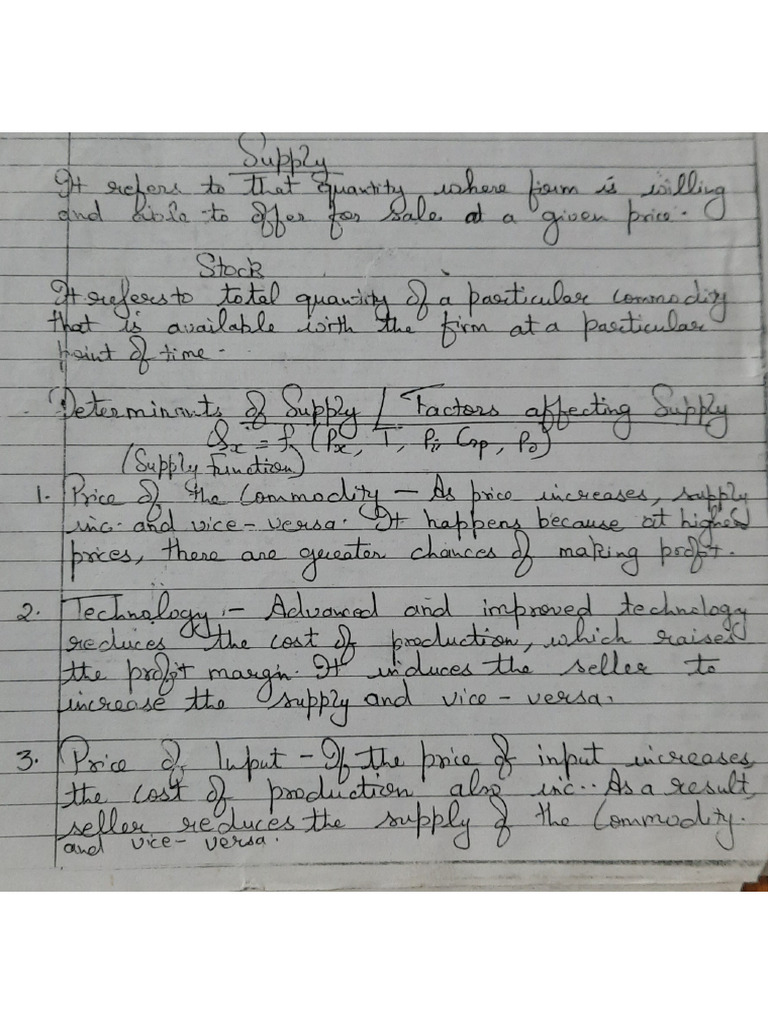 Supply
It refers to that quantity where firm is willing
and able to offer for sale at a given price.
Stock
It refers to total quantity of a particular commodity
that is available with the firm at a particular
point of time.
Determinants of Supply / Factors affecting Supply
Sx = f (Px, T, Pi, Gp, Po)
(Supply Function)
1. Price of the Commodity – As price increases, supply
inc. and vice-versa. It happens because at higher
prices, there are greater chances of making profit.
2. Technology :- Advanced and improved technology
reduces the cost of production, which raises
the profit margin. It induces the seller to
increase the supply and vice-versa.
3. Price of Input – If the price of input increases
the cost of production also inc.. As a result,
seller reduces the supply of the Commodity.
and vice-versa.